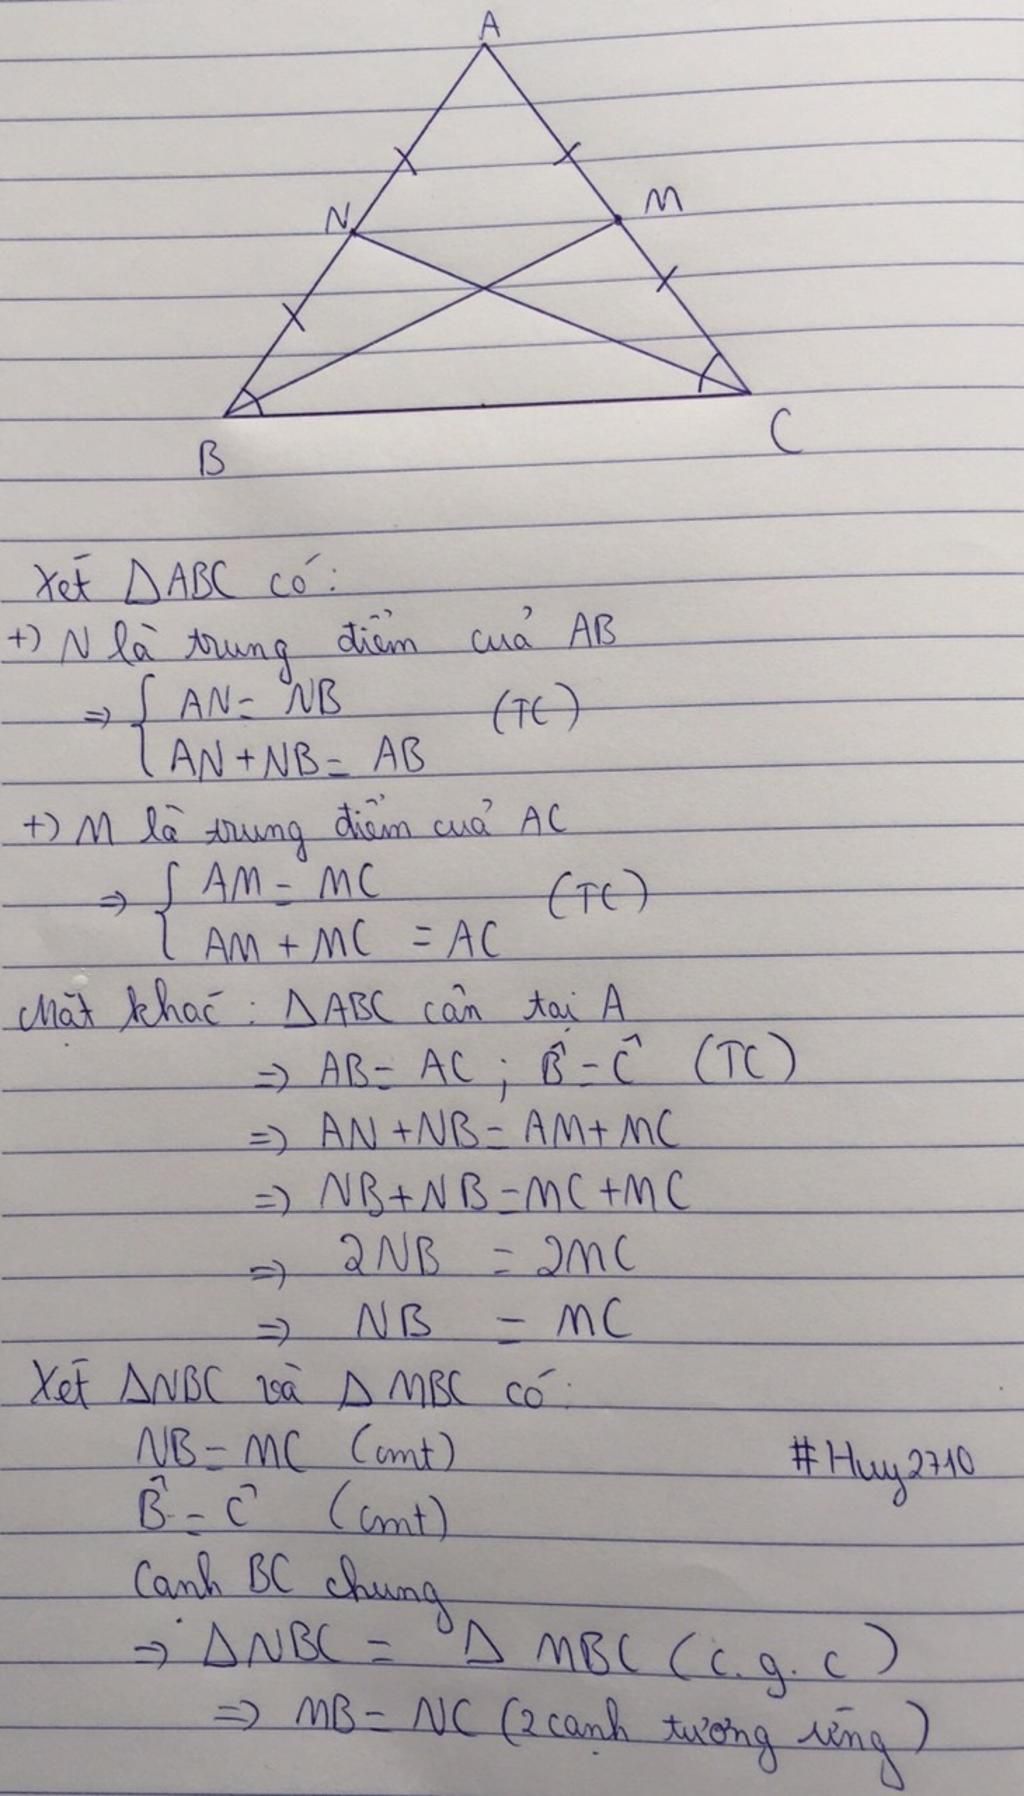 A
N
M
B
C
Xét ΔABC có:
+) N là trung điểm của AB
⇒ { AN = NB (TC)
AN + NB = AB
+) M là trung điểm của AC
⇒ { AM = MC (TC)
AM + MC = AC
Mặt khác: ΔABC cân tại A
⇒ AB = AC ; B̂ = Ĉ (TC)
⇒ AN + NB = AM + MC
⇒ NB + NB = MC + MC
⇒ 2NB = 2MC
⇒ NB = MC
Xét ΔNBC và Δ MBC có:
NB = MC (cmt)
#Huy2710
B̂ = Ĉ (cmt)
Cạnh BC chung
⇒ ΔNBC = Δ MBC (c.g.c)
⇒ MB = NC (2 cạnh tương ứng)